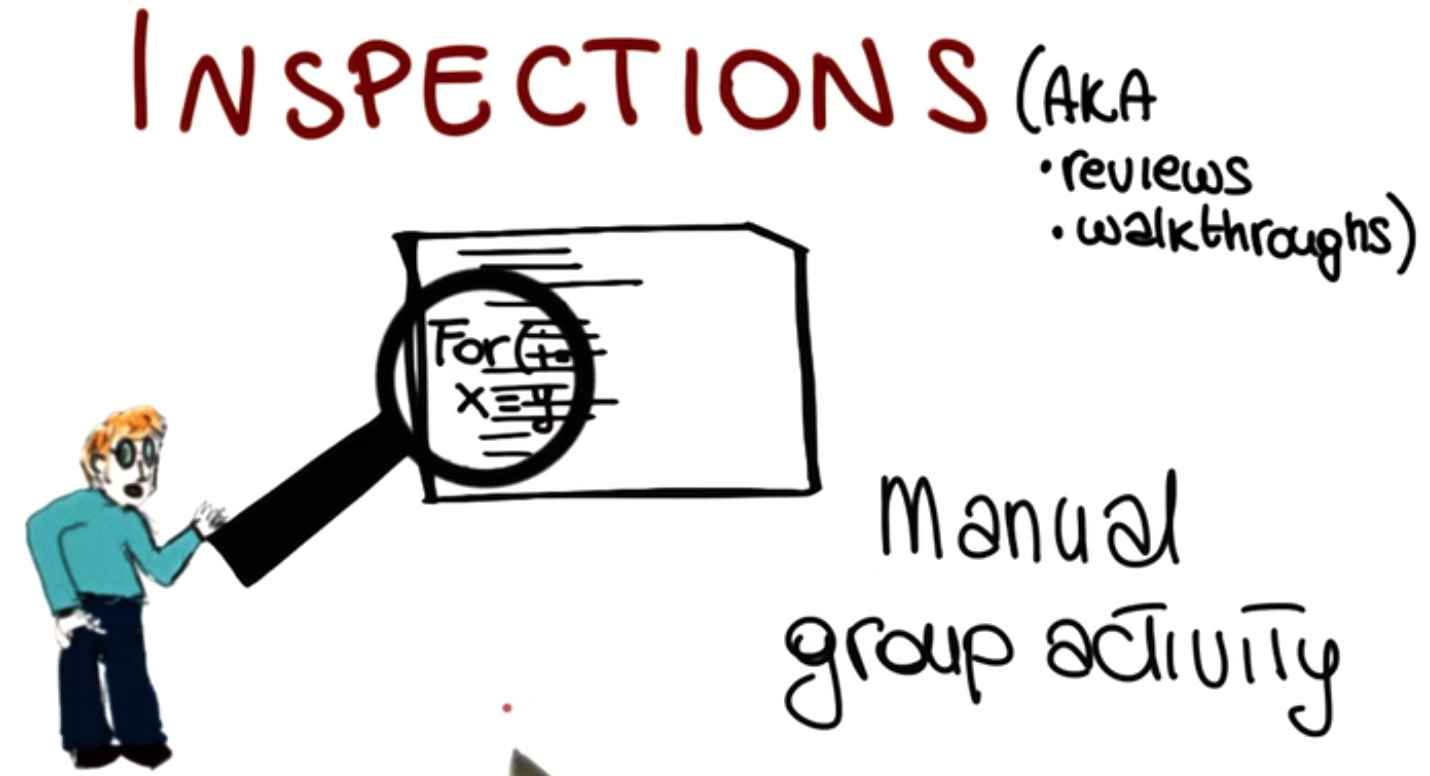 INSPECTIONS (AKA
• reviews
• walkthroughs)
For (i=
x=y
Manual
group activity